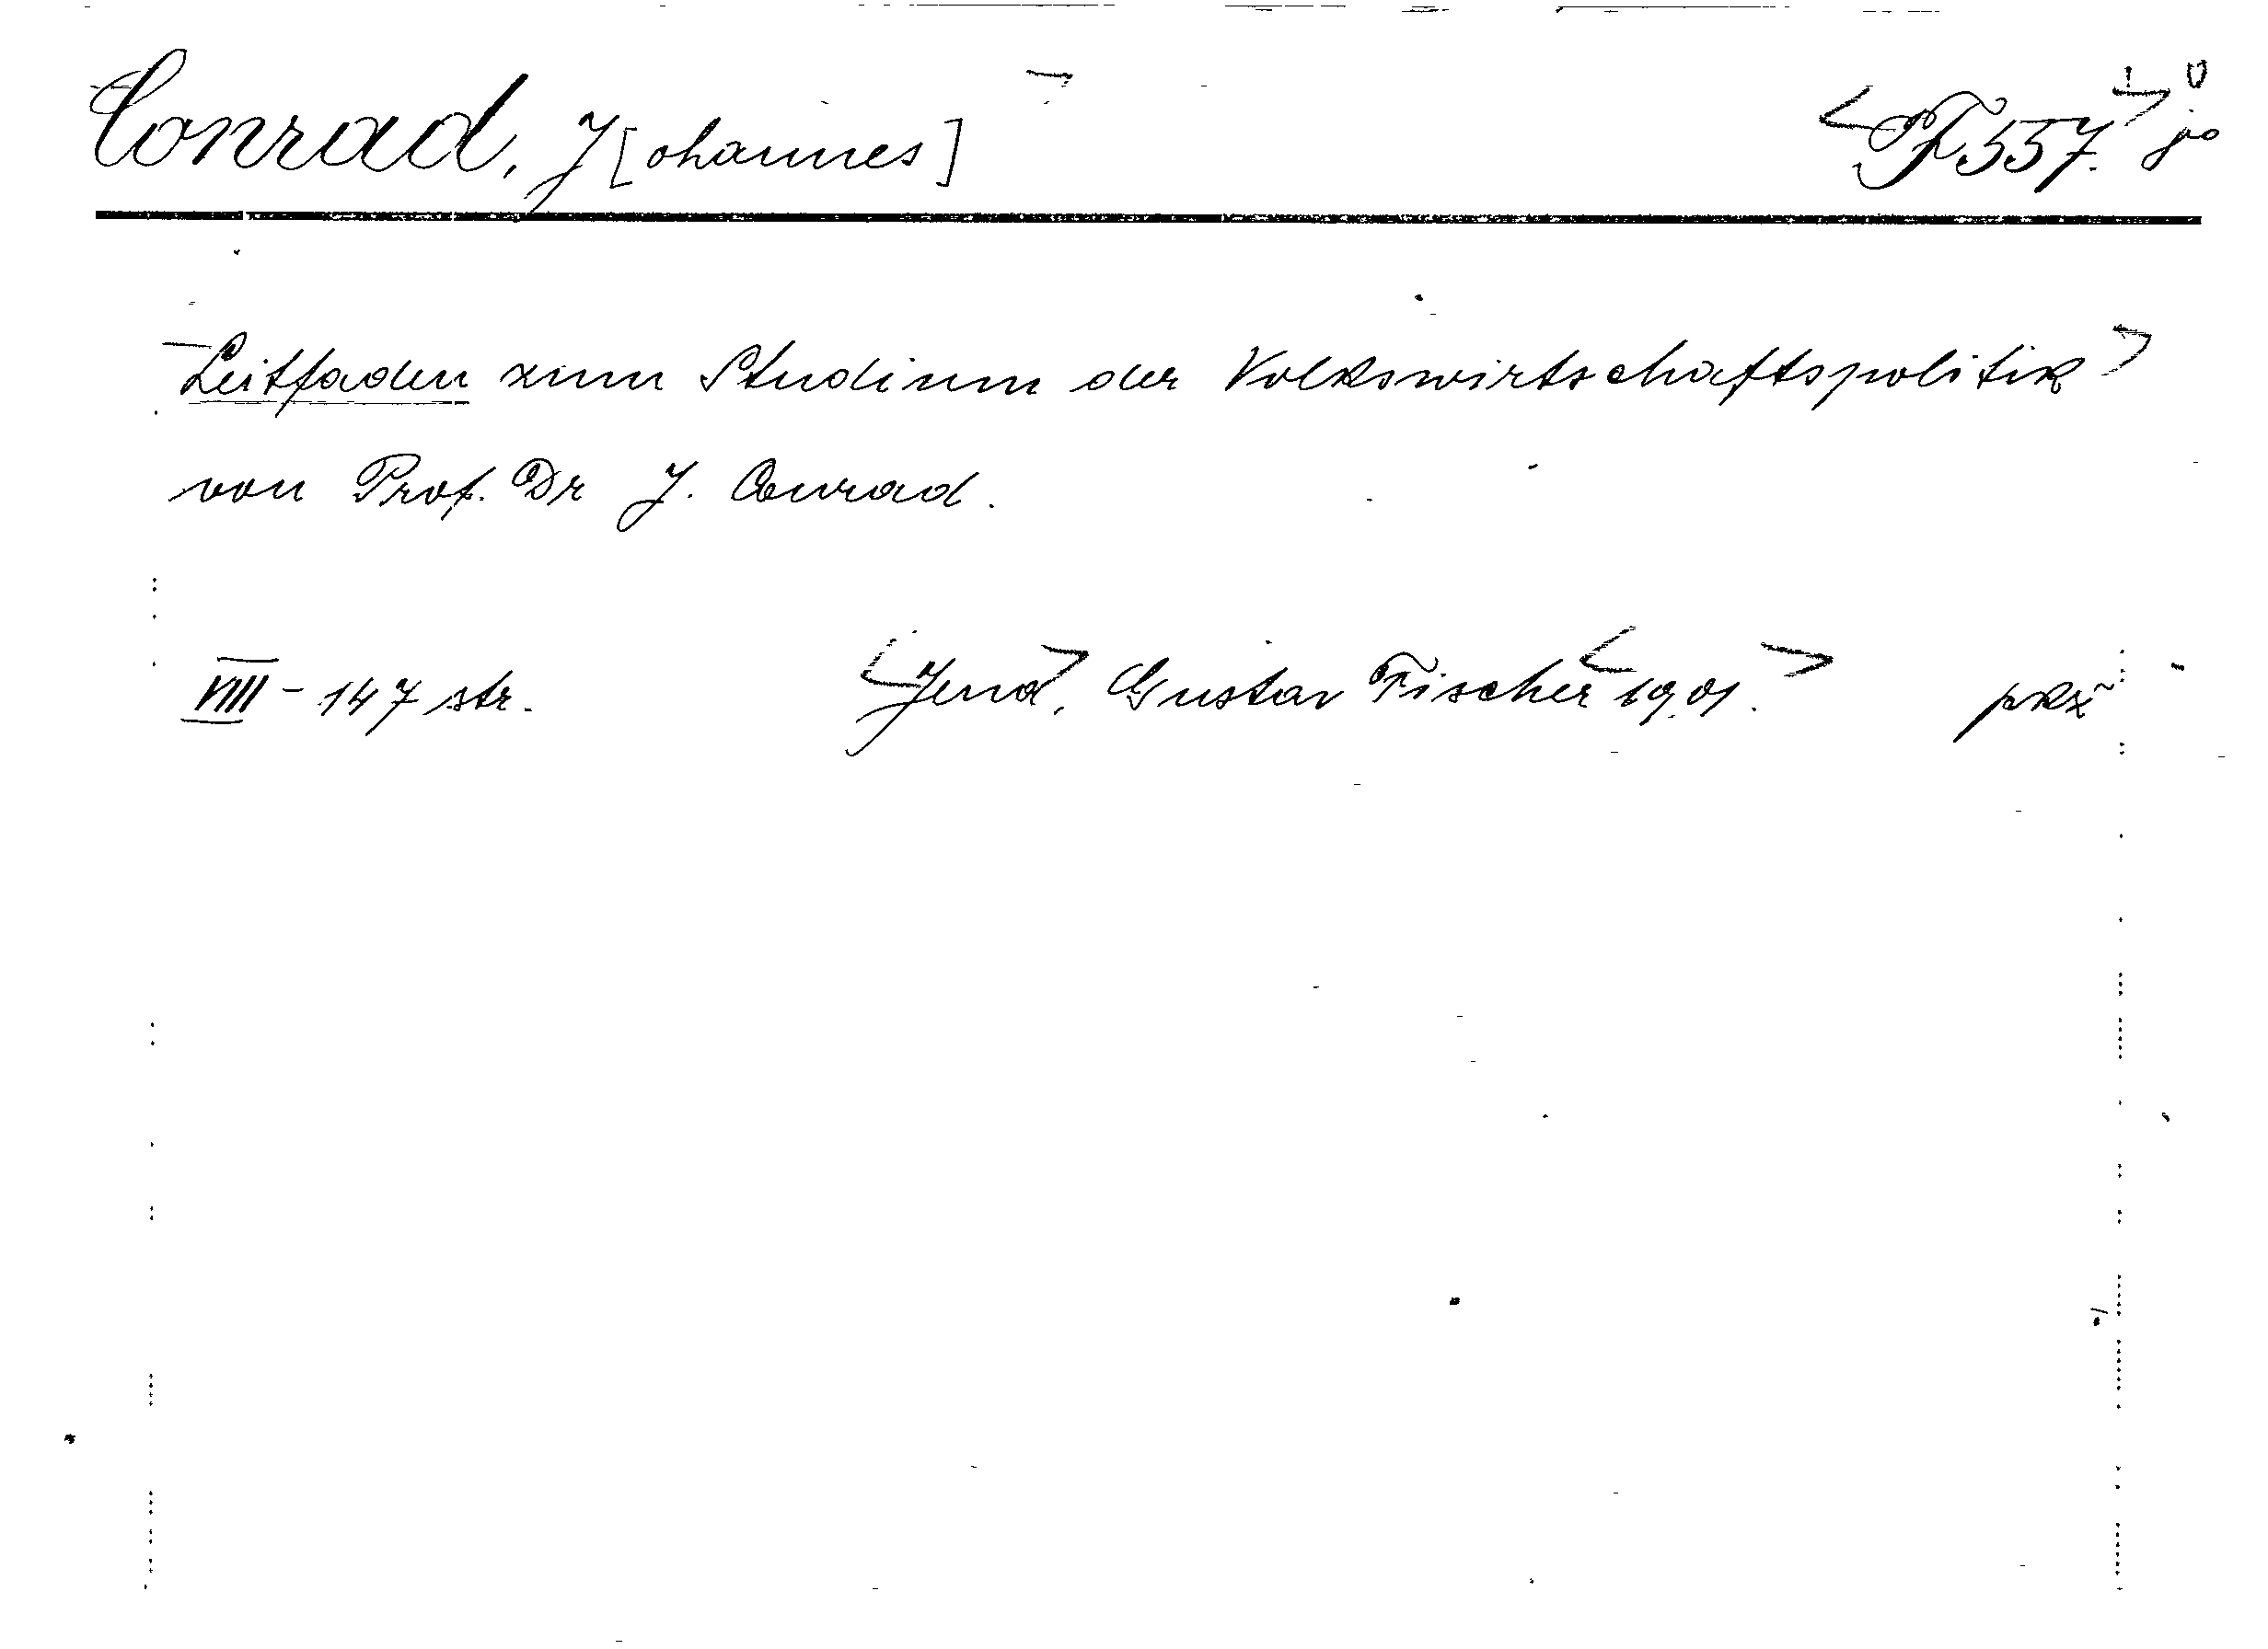 Conrad, J[ohannes]
Leitfaden zum Studium der Volkswirtschaftspolitik
von Prof. Dr J. Conrad.
VIII - 147 str. Jena, Gustav Fischer 1901.